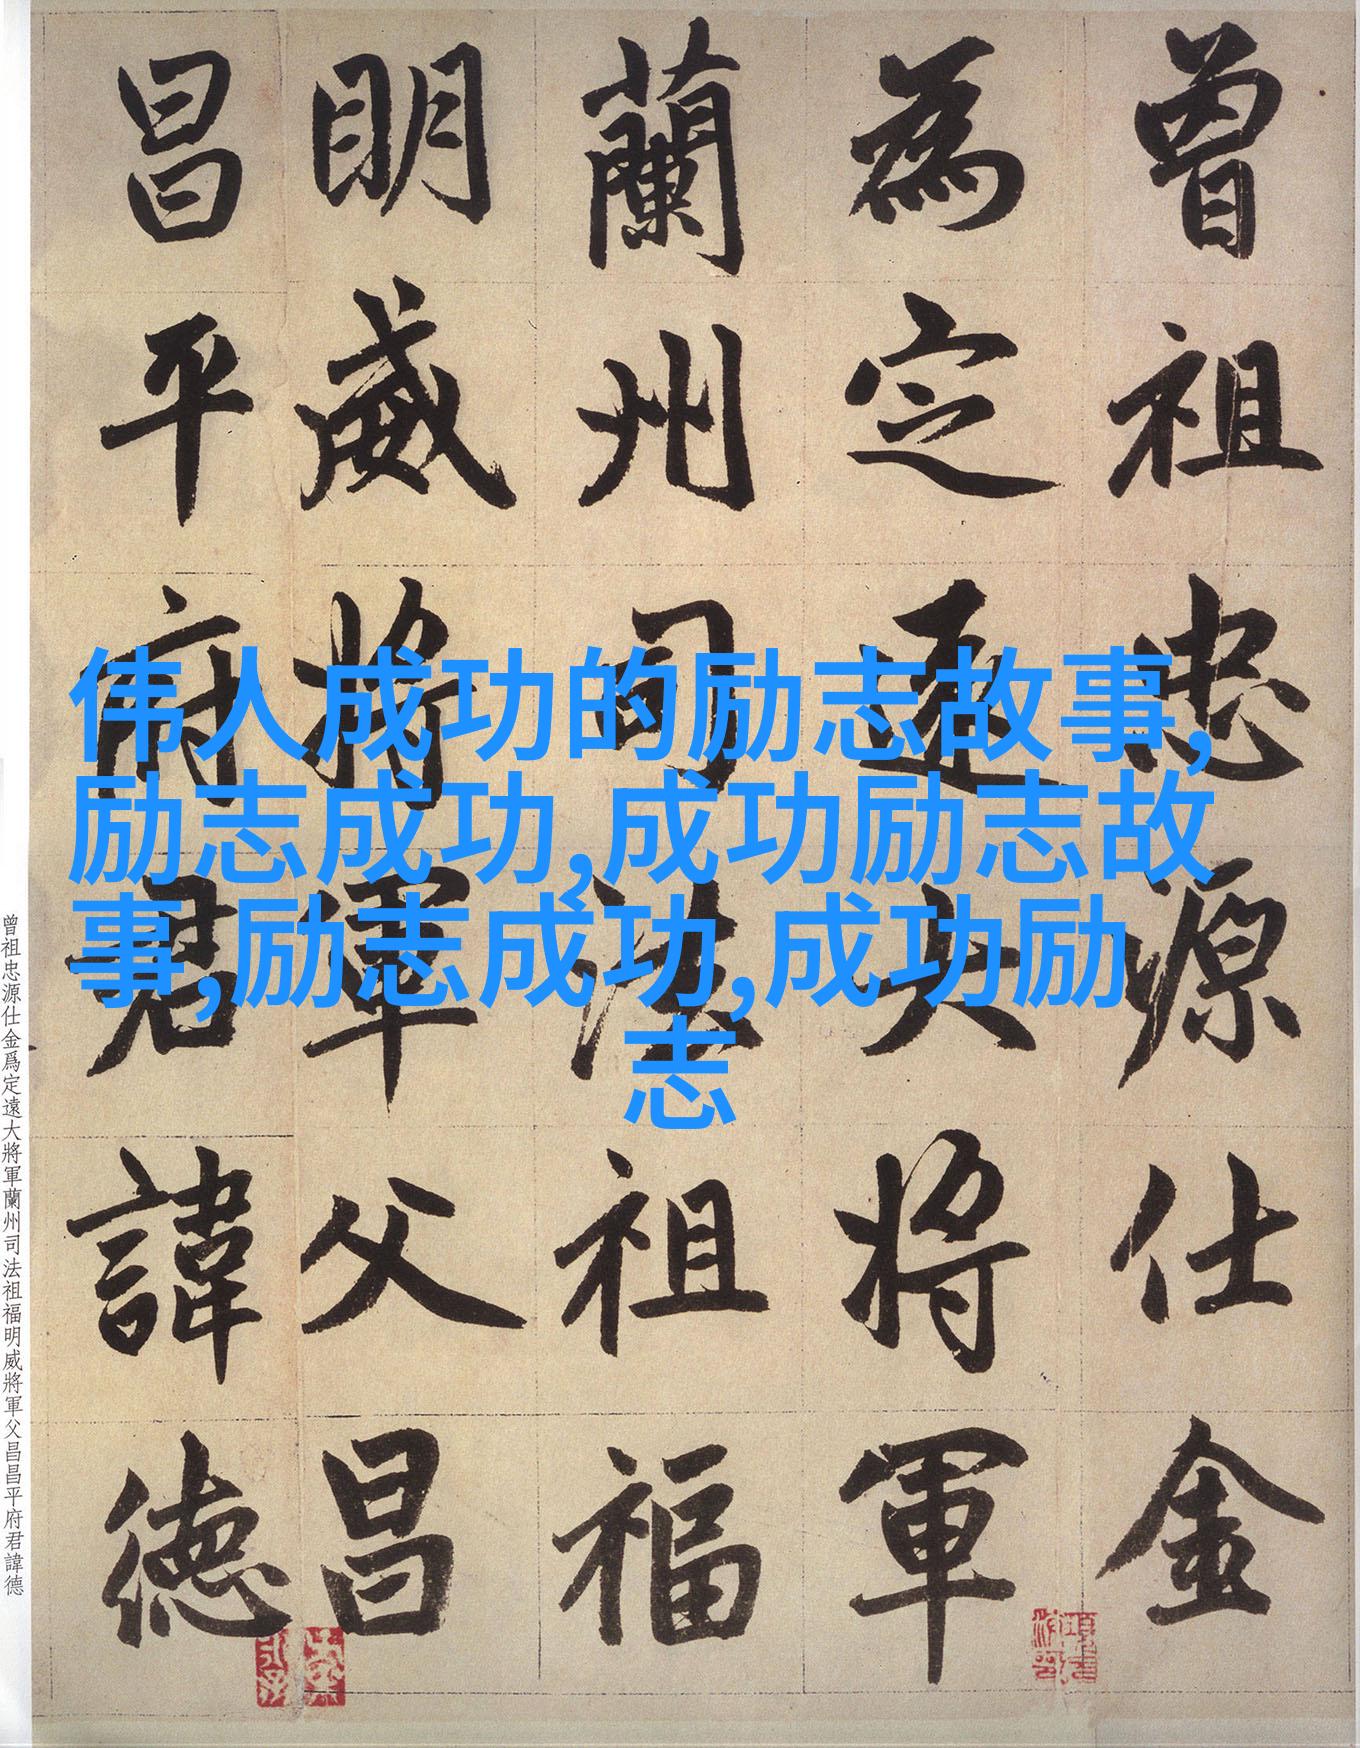 曾祖忠源仕金
為定遠大將軍
蘭州司法祖福
明威將軍父昌
昌平府君諱德
伟人成功的励志故事,
励志成功,成功励志故
事,励志成功,成功励
志
曾祖忠源仕金爲定遠大將軍蘭州司法祖福明威將軍父昌昌平府君諱德